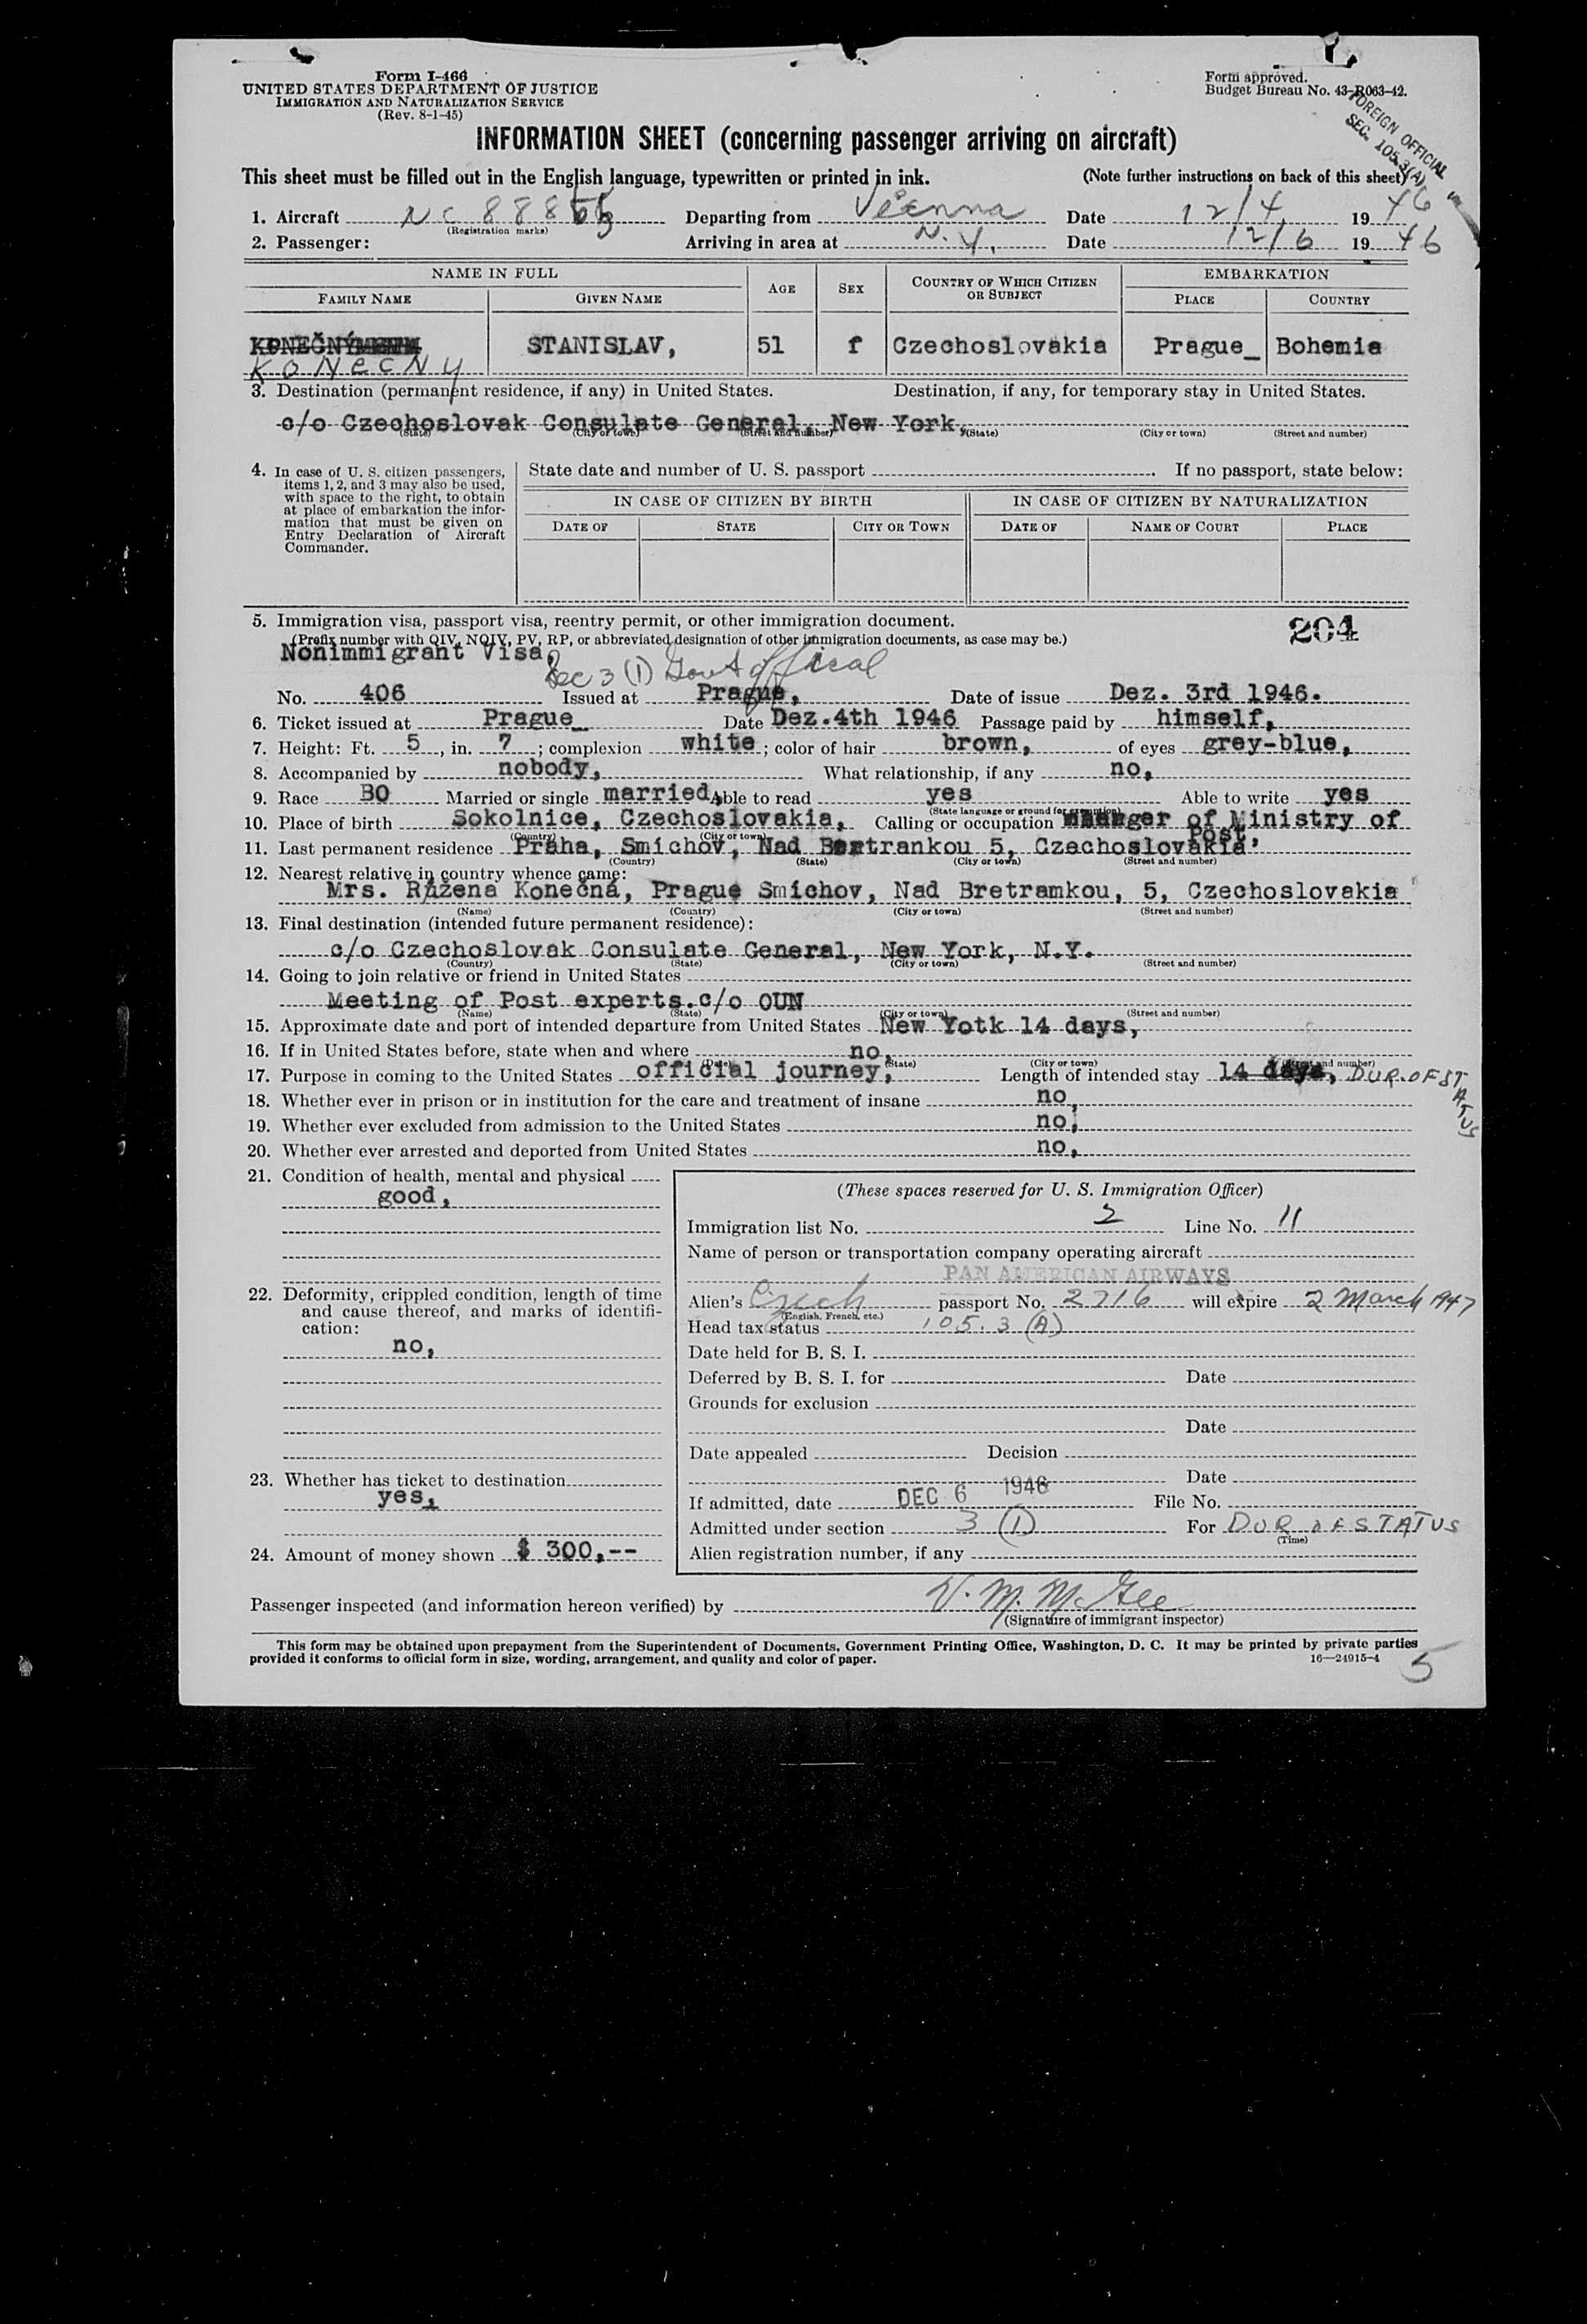 Form I-466
UNITED STATES DEPARTMENT OF JUSTICE
IMMIGRATION AND NATURALIZATION SERVICE
(Rev. 8-1-45)
Form approved.
Budget Bureau No. 43-R063-42.
FOREIGN OFFICIAL
SEC. 105.3(A)
INFORMATION SHEET (concerning passenger arriving on aircraft)
This sheet must be filled out in the English language, typewritten or printed in ink. (Note further instructions on back of this sheet)
1. Aircraft (Registration marks) Departing from Vienna Date 12/4 1946
2. Passenger: Arriving in area at N.Y. Date 12/6 1946
NAME IN FULL AGE SEX COUNTRY OF WHICH CITIZEN OR SUBJECT EMBARKATION
FAMILY NAME GIVEN NAME PLACE COUNTRY
KONEČNÝ STANISLAV, 51 f Czechoslovakia Prague_ Bohemia
KONECNY
3. Destination (permanent residence, if any) in United States. Destination, if any, for temporary stay in United States.
c/o Czechoslovak Consulate General, New York,
(State) (City or town) (Street and number) (State) (City or town) (Street and number)
4. In case of U. S. citizen passengers, items 1, 2, and 3 may also be used, with space to the right, to obtain at place of embarkation the information that must be given on Entry Declaration of Aircraft Commander.
State date and number of U. S. passport . If no passport, state below:
IN CASE OF CITIZEN BY BIRTH IN CASE OF CITIZEN BY NATURALIZATION
DATE OF STATE CITY OR TOWN DATE OF NAME OF COURT PLACE
5. Immigration visa, passport visa, reentry permit, or other immigration document.
(Prefix number with QIV, NQIV, PV, RP, or abbreviated designation of other immigration documents, as case may be.)
204
Nonimmigrant Visa,
Sec 3 (1) Govt official
No. 406 Issued at Prague, Date of issue Dez. 3rd 1946.
6. Ticket issued at Prague_ Date Dez.4th 1946 Passage paid by himself,
7. Height: Ft. 5, in. 7; complexion white; color of hair brown, of eyes grey-blue,
8. Accompanied by nobody, What relationship, if any no,
9. Race BO Married or single married, Able to read yes Able to write yes
(State language or ground for exemption)
10. Place of birth Sokolnice, Czechoslovakia, Calling or occupation manager of Ministry of Post,
(Country) (City or town)
11. Last permanent residence Praha, Smíchov, Nad Bertrankou 5, Czechoslovakia
(Country) (State) (City or town) (Street and number)
12. Nearest relative in country whence came:
Mrs. Růžena Konečná, Prague Smíchov, Nad Bretramkou, 5, Czechoslovakia
(Name) (Country) (City or town) (Street and number)
13. Final destination (intended future permanent residence):
c/o Czechoslovak Consulate General, New York, N.Y.
(Country) (State) (City or town) (Street and number)
14. Going to join relative or friend in United States
Meeting of Post experts.c/o OUN
(Name) (State) (City or town) (Street and number)
15. Approximate date and port of intended departure from United States New Yotk 14 days,
16. If in United States before, state when and where no,
(Date) (State) (City or town) (Street and number)
17. Purpose in coming to the United States official journey, Length of intended stay 14 days, DUR. OF STATUS
18. Whether ever in prison or in institution for the care and treatment of insane no,
19. Whether ever excluded from admission to the United States no,
20. Whether ever arrested and deported from United States no,
21. Condition of health, mental and physical
good,
22. Deformity, crippled condition, length of time and cause thereof, and marks of identification:
no,
23. Whether has ticket to destination
yes,
24. Amount of money shown $ 300,--
(These spaces reserved for U. S. Immigration Officer)
Immigration list No. 2 Line No. 11
Name of person or transportation company operating aircraft
PAN AMERICAN AIRWAYS
Alien's Czech passport No. 2716 will expire 2 March 1947
(English, French, etc.)
Head tax status 105.3 (A)
Date held for B. S. I.
Deferred by B. S. I. for Date
Grounds for exclusion
Date
Date appealed Decision
Date
If admitted, date DEC 6 1946 File No.
Admitted under section 3 (1) For DUR OF STATUS
(Time)
Alien registration number, if any
Passenger inspected (and information hereon verified) by V. M. McGee
(Signature of immigrant inspector)
This form may be obtained upon prepayment from the Superintendent of Documents, Government Printing Office, Washington, D. C. It may be printed by private parties
provided it conforms to official form in size, wording, arrangement, and quality and color of paper. 16—24915-4
5